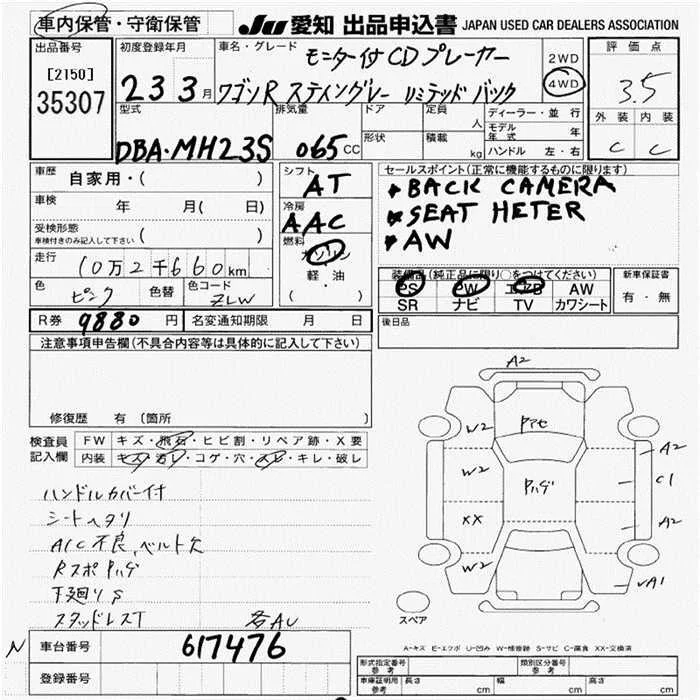 車内保管・守衛保管
JU 愛知 出品申込書 JAPAN USED CAR DEALERS ASSOCIATION
出品番号
[2150]
35307
初度登録年月
23 3月
車名・グレード
モニター付CDプレーヤー
ワゴンR スティングレー リミテッド バック
2WD
4WD
評価点
3.5
外装 内装
C C
型式
DBA・MH23S
排気量
065cc
ドア
形状
定員 人
積載 kg
ディーラー・並行
モデル年式 年
ハンドル 左・右
車歴 自家用・( )
車検 年 月( 日)
受検形態
車検付きのみ記入して下さい ( )
走行 10万2千660km
色 ピンク 色替 色コード ZLW
シフト AT
冷房 AAC
燃料
ガソリン
軽・油
( ・ )
セールスポイント(正常に機能するものに限ります)
* BACK CAMERA
* SEAT HETER
* AW
装備品(純正品に限り○をつけてください)
PS PW エアB AW
SR ナビ TV カワシート
新車保証書
有・無
R券 9880円 名変通知期限 月 日
後日品
注意事項申告欄(不具合内容等は具体的に記入して下さい)
修復歴 有 〔箇所
検査員記入欄
FW キズ・飛石・ヒビ割・リペア跡・X要
内装 キズ・汚レ・コゲ・穴・スレ・キレ・破レ
ハンドルカバー付
シートヘタリ
A/C不良、ベルト欠
Rスポハゲ
下廻りS
スタッドレスT 各AU
A2
W2
アセ
A2
W2
ハゲ
C1
XX
A2
W2
A1
スペア
A-キズ E-エクボ U-凹み W-補修跡 S-サビ C-腐食 XX-交換済
N 車台番号 617476
登録番号
形式指定番号 参考
類別区分番号 参考
車庫証明用 参考 長さ cm 幅 cm 高さ cm